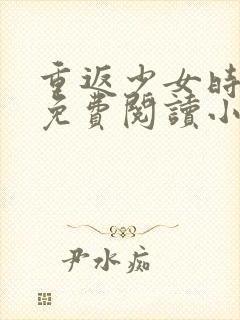 重返少女時
免費閱讀小
尹水痴